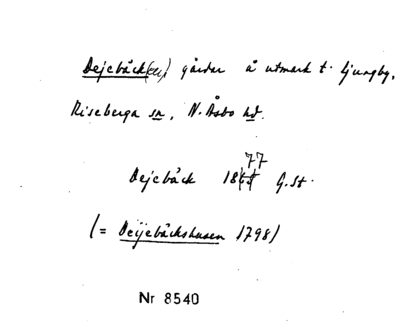 Dejebäck(en) gårdar å utmark t. Ljungby,
Riseberga sn, N. Åsbo hd.
77
Dejebäck 18 G.St.
(= Deijebäckshusen 1798)
Nr 8540